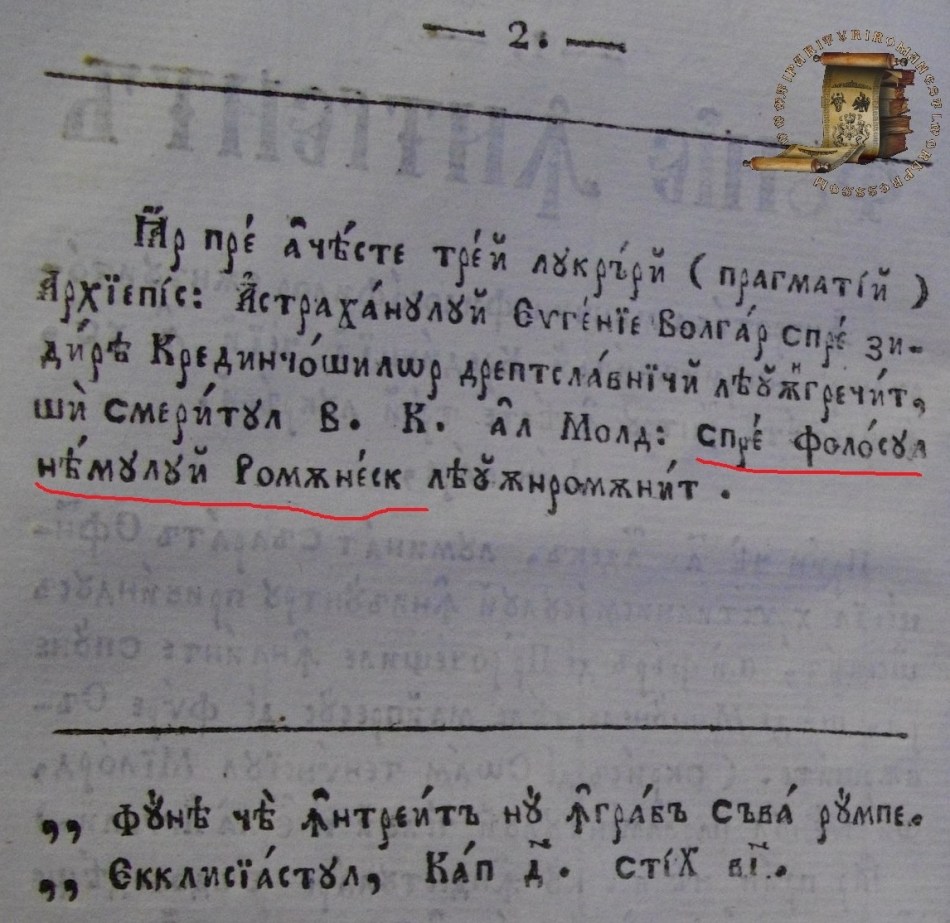 — 2. —
Ꙗ҆р пре́ а҆че́сте тре́й лꙋкрꙋ́рй ( прагматі́й )
Архїепі́с: А҆страха́нꙋлꙋй Євге́нїе Волга́р спре́ зи-
ди́рѣ Крединчо́шилѡр дрептсла́внїчй лѣꙋ҆ꙟгречи́т,
шѝ смери́тꙋл В. К. а҆л Молд: спре́ фоло́сꙋл
нѣ́мꙋлꙋй Ромѫне́ск лѣꙋ҆ѫнромѫни́т .
„ Фꙋ́нѣ чѐ ꙟ҆нтреи́тъ нꙋ̀ ꙟ҆гра́бъ съва́ рꙋ́мпе.
„ Єкклисїа́стꙋл, Ка́п д҃. сті́х в҃і.